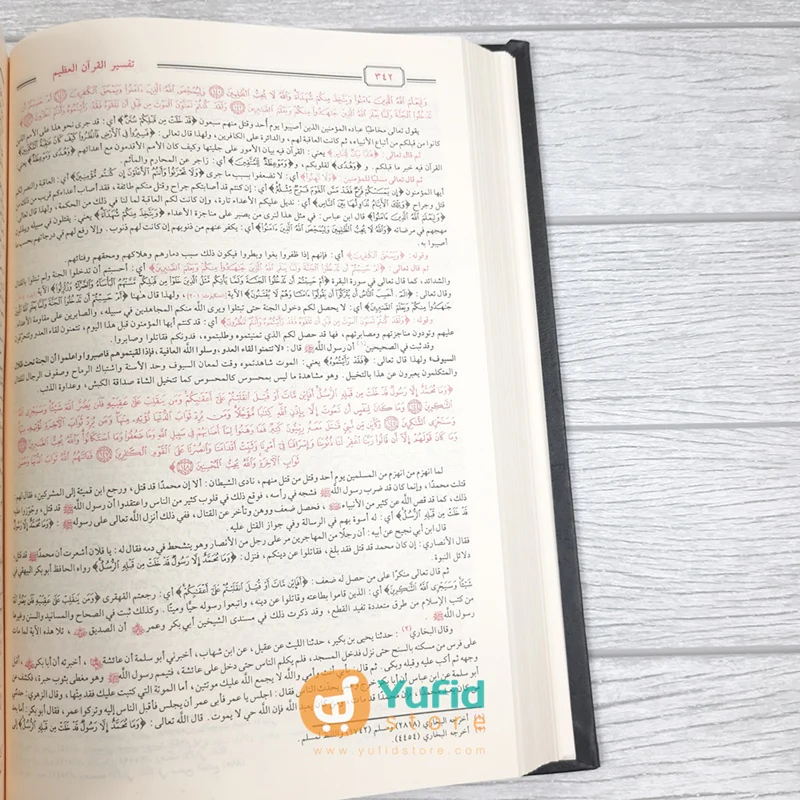 تفسير القرآن العظيم
٣٤٢
وَلِيَعْلَمَ اللَّهُ الَّذِينَ ءَامَنُوا وَيَتَّخِذَ مِنكُمْ شُهَدَاءَ وَاللَّهُ لَا يُحِبُّ الظَّالِمِينَ وَلِيُمَحِّصَ اللَّهُ الَّذِينَ ءَامَنُوا وَيَمْحَقَ الْكَافِرِينَ أَمْ حَسِبْتُمْ أَن
تَدْخُلُوا الْجَنَّةَ وَلَمَّا يَعْلَمِ اللَّهُ الَّذِينَ جَاهَدُوا مِنكُمْ وَيَعْلَمَ الصَّابِرِينَ وَلَقَدْ كُنتُمْ تَمَنَّوْنَ الْمَوْتَ مِن قَبْلِ أَن تَلْقَوْهُ فَقَدْ رَأَيْتُمُوهُ وَأَنتُمْ تَنظُرُونَ
يقول تعالى مخاطبًا عباده المؤمنين الذين أصيبوا يوم أحد وقتل منهم سبعون ﴿قَدْ خَلَتْ مِن قَبْلِكُمْ سُنَنٌ﴾ أي: قد جرى نحو هذا على الأمم الذين
كانوا من قبلكم من أتباع الأنبياء، ثم كانت العاقبة لهم، والدائرة على الكافرين، ولهذا قال تعالى: ﴿فَسِيرُوا فِي الْأَرْضِ فَانظُرُوا كَيْفَ كَانَ عَاقِبَةُ الْمُكَذِّبِينَ﴾
ثم قال تعالى: ﴿هَٰذَا بَيَانٌ لِّلنَّاسِ﴾ يعني: القرآن فيه بيان الأمور على جليتها وكيف كان الأمم الأقدمون مع أعدائهم ﴿وَهُدًى وَمَوْعِظَةٌ﴾ يعني
القرآن فيه خبر ما قبلكم. و ﴿هُدًى﴾ لقلوبكم، و﴿وَمَوْعِظَةٌ لِّلْمُتَّقِينَ﴾ أي: زاجر عن المحارم والمآثم.
ثم قال تعالى مسليًا للمؤمنين: ﴿وَلَا تَهِنُوا﴾ أي: لا تضعفوا بسبب ما جرى ﴿وَلَا تَحْزَنُوا وَأَنتُمُ الْأَعْلَوْنَ إِن كُنتُم مُّؤْمِنِينَ﴾ أي: العاقبة والنصر لكم
أيها المؤمنون ﴿إِن يَمْسَسْكُمْ قَرْحٌ فَقَدْ مَسَّ الْقَوْمَ قَرْحٌ مِّثْلُهُ﴾ أي: إن كنتم قد أصابتكم جراح وقتل منكم طائفة، فقد أصاب أعداءكم قريب من ذلك من
قتل وجراح ﴿وَتِلْكَ الْأَيَّامُ نُدَاوِلُهَا بَيْنَ النَّاسِ﴾ أي: نديل عليكم الأعداء تارة، وإن كانت لكم العاقبة لما لنا في ذلك من الحكمة، ولهذا قال تعالى
﴿وَلِيَعْلَمَ اللَّهُ الَّذِينَ ءَامَنُوا﴾ قال ابن عباس: في مثل هذا لنرى من يصبر على مناجزة الأعداء ﴿وَيَتَّخِذَ مِنكُمْ شُهَدَاءَ﴾ يعني: يقتلون في سبيله ويبذلون
مهجهم في مرضاته ﴿وَاللَّهُ لَا يُحِبُّ الظَّالِمِينَ وَلِيُمَحِّصَ اللَّهُ الَّذِينَ ءَامَنُوا﴾ أي: يكفر عنهم من ذنوبهم إن كانت لهم ذنوب. وإلا رفع لهم في درجاتهم بحسب ما
أصيبوا به.
وقوله: ﴿وَيَمْحَقَ الْكَافِرِينَ﴾ أي: فإنهم إذا ظفروا بغوا وبطروا فيكون ذلك سبب دمارهم وهلاكهم ومحقهم وفنائهم.
ثم قال تعالى: ﴿أَمْ حَسِبْتُمْ أَن تَدْخُلُوا الْجَنَّةَ وَلَمَّا يَعْلَمِ اللَّهُ الَّذِينَ جَاهَدُوا مِنكُمْ وَيَعْلَمَ الصَّابِرِينَ﴾ أي: أحسبتم أن تدخلوا الجنة ولم تبتلوا بالقتال
والشدائد، كما قال تعالى في سورة البقرة ﴿أَمْ حَسِبْتُمْ أَن تَدْخُلُوا الْجَنَّةَ وَلَمَّا يَأْتِكُم مَّثَلُ الَّذِينَ خَلَوْا مِن قَبْلِكُم مَّسَّتْهُمُ الْبَأْسَاءُ وَالضَّرَّاءُ وَزُلْزِلُوا﴾ الآية
وقال تعالى: ﴿الٓمٓ أَحَسِبَ النَّاسُ أَن يُتْرَكُوا أَن يَقُولُوا ءَامَنَّا وَهُمْ لَا يُفْتَنُونَ﴾ الآية ولهذا قال هاهنا ﴿أَمْ حَسِبْتُمْ أَن تَدْخُلُوا الْجَنَّةَ وَلَمَّا يَعْلَمِ اللَّهُ الَّذِينَ
جَاهَدُوا مِنكُمْ وَيَعْلَمَ الصَّابِرِينَ﴾ أي: لا يحصل لكم دخول الجنة حتى تبتلوا ويرى الله منكم المجاهدين في سبيله، والصابرين على مقاومة الأعداء
وقوله ﴿وَلَقَدْ كُنتُمْ تَمَنَّوْنَ الْمَوْتَ مِن قَبْلِ أَن تَلْقَوْهُ فَقَدْ رَأَيْتُمُوهُ وَأَنتُمْ تَنظُرُونَ﴾ أي: قد كنتم أيها المؤمنون قبل هذا اليوم، تتمنون لقاء العدو وتتحرقون
عليهم وتودون مناجزتهم ومصابرتهم، فها قد حصل لكم الذي تمنيتموه وطلبتموه، فدونكم فقاتلوا وصابروا.
وقد ثبت في الصحيحين أن رسول الله ﷺ قال: «لا تتمنوا لقاء العدو، وسلوا الله العافية، فإذا لقيتموهم فاصبروا واعلموا أن الجنة تحت ظلال
السيوف» ولهذا قال تعالى: ﴿فَقَدْ رَأَيْتُمُوهُ﴾ يعني: الموت شاهدتموه وقت لمعان السيوف وحد الأسنة واشتباك الرماح وصفوف الرجال للقتال
والمتكلمون يعبرون عن هذا بالتخييل. وهو مشاهدة ما ليس بمحسوس كالمحسوس كما تتخيل الشاة صداقة الكبش، وعداوة الذئب
﴿وَمَا مُحَمَّدٌ إِلَّا رَسُولٌ قَدْ خَلَتْ مِن قَبْلِهِ الرُّسُلُ أَفَإِين مَّاتَ أَوْ قُتِلَ انقَلَبْتُمْ عَلَىٰ أَعْقَابِكُمْ وَمَن يَنقَلِبْ عَلَىٰ عَقِبَيْهِ فَلَن يَضُرَّ اللَّهَ شَيْئًا وَسَيَجْزِي اللَّهُ
الشَّاكِرِينَ وَمَا كَانَ لِنَفْسٍ أَن تَمُوتَ إِلَّا بِإِذْنِ اللَّهِ كِتَابًا مُّؤَجَّلًا وَمَن يُرِدْ ثَوَابَ الدُّنْيَا نُؤْتِهِ مِنْهَا وَمَن يُرِدْ ثَوَابَ الْآخِرَةِ نُؤْتِهِ مِنْهَا
وَسَنَجْزِي الشَّاكِرِينَ وَكَأَيِّن مِّن نَّبِيٍّ قَاتَلَ مَعَهُ رِبِّيُّونَ كَثِيرٌ فَمَا وَهَنُوا لِمَا أَصَابَهُمْ فِي سَبِيلِ اللَّهِ وَمَا ضَعُفُوا وَمَا اسْتَكَانُوا وَاللَّهُ يُحِبُّ الصَّابِرِينَ
وَمَا كَانَ قَوْلَهُمْ إِلَّا أَن قَالُوا رَبَّنَا اغْفِرْ لَنَا ذُنُوبَنَا وَإِسْرَافَنَا فِي أَمْرِنَا وَثَبِّتْ أَقْدَامَنَا وَانصُرْنَا عَلَى الْقَوْمِ الْكَافِرِينَ فَآتَاهُمُ اللَّهُ ثَوَابَ الدُّنْيَا وَحُسْنَ
ثَوَابِ الْآخِرَةِ وَاللَّهُ يُحِبُّ الْمُحْسِنِينَ﴾
لما انهزم من انهزم من المسلمين يوم أحد وقتل من قتل منهم، نادى الشيطان: ألا إن محمدًا قد قتل، ورجع ابن قميئة إلى المشركين، فقال لهم
قتلت محمدًا، وإنما كان قد ضرب رسول الله ﷺ فشجه في رأسه، فوقع ذلك في قلوب كثير من الناس واعتقدوا أن رسول الله ﷺ قد قتل، وجوزوا عليه
ذلك، كما قد قص الله عن كثير من الأنبياء، فحصل ضعف ووهن وتأخر عن القتال، ففي ذلك أنزل الله تعالى على رسوله ﷺ: ﴿وَمَا مُحَمَّدٌ إِلَّا رَسُولٌ
قَدْ خَلَتْ مِن قَبْلِهِ الرُّسُلُ﴾ أي: له أسوة بهم في الرسالة وفي جواز القتل عليه.
قال ابن أبي نجيح عن أبيه: أن رجلًا من المهاجرين مر على رجل من الأنصار وهو يتشحط في دمه فقال له: يا فلان أشعرت أن محمدًا ﷺ قد قتل
فقال الأنصاري: إن كان محمد قد قتل فقد بلغ، فقاتلوا عن دينكم، فنزل: ﴿وَمَا مُحَمَّدٌ إِلَّا رَسُولٌ قَدْ خَلَتْ مِن قَبْلِهِ الرُّسُلُ﴾ رواه الحافظ أبو بكر البيهقي في
دلائل النبوة.
ثم قال تعالى منكرًا على من حصل له ضعف: ﴿أَفَإِين مَّاتَ أَوْ قُتِلَ انقَلَبْتُمْ عَلَىٰ أَعْقَابِكُمْ﴾ أي: رجعتم القهقرى ﴿وَمَن يَنقَلِبْ عَلَىٰ عَقِبَيْهِ فَلَن يَضُرَّ اللَّهَ
شَيْئًا وَسَيَجْزِي اللَّهُ الشَّاكِرِينَ﴾ أي: الذين قاموا بطاعته وقاتلوا عن دينه، واتبعوا رسوله حيًا وميتًا. وكذلك ثبت في الصحاح والمسانيد والسنن وغيرها
من كتب الإسلام من طرق متعددة تفيد القطع، وقد ذكرت ذلك في مسندي الشيخين أبي بكر وعمر، أن الصديق تلا هذه الآية لما مات
رسول الله ﷺ.
وقال البخاري: حدثنا يحيى بن بكير، حدثنا الليث عن عقيل، عن ابن شهاب، أخبرني أبو سلمة أن عائشة أخبرته أن أبا بكر أقبل
على فرس من مسكنه بالسنح حتى نزل فدخل المسجد، فلم يكلم الناس حتى دخل على عائشة، فتيمم رسول الله ﷺ وهو مغطى بثوب حبرة، فكشف عن
وجهه ثم أكب عليه وقبله وبكى. ثم قال: بأبي أنت وأمي والله لا يجمع الله عليك موتتين، أما الموتة التي كتبت عليك فقد متها، وقال الزهري: حدثني
أبو سلمة عن ابن عباس أن أبا بكر يحدث الناس فقال: اجلس يا عمر فأبى عمر أن يجلس فأقبل الناس إليه وتركوا عمر، فقال أبو بكر: أما بعد
الله فإن الله حي لا يموت. قال الله تعالى: ﴿وَمَا مُحَمَّدٌ إِلَّا رَسُولٌ قَدْ خَلَتْ مِن قَبْلِهِ الرُّسُلُ
أخرجه البخاري (٢٨١٨) ومسلم (١٧٤٢)
أخرجه البخاري (٤٤٥٤).
Yufid
STORE
www.yufidstore.com